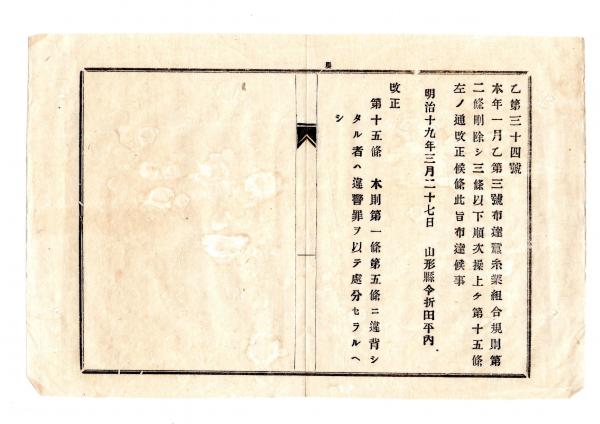 乙第三十四號
本年一月乙第三號布達蠶糸業組合規則第
二條刪除シ三條以下順次操上ケ第十五條
左ノ通改正候條此旨布達候事
明治十九年三月二十七日　山形縣令折田平內
改正
第十五條　本則第一條第五條ニ違背シ
タル者ハ違警罪ヲ以テ處分セラルヘ
シ